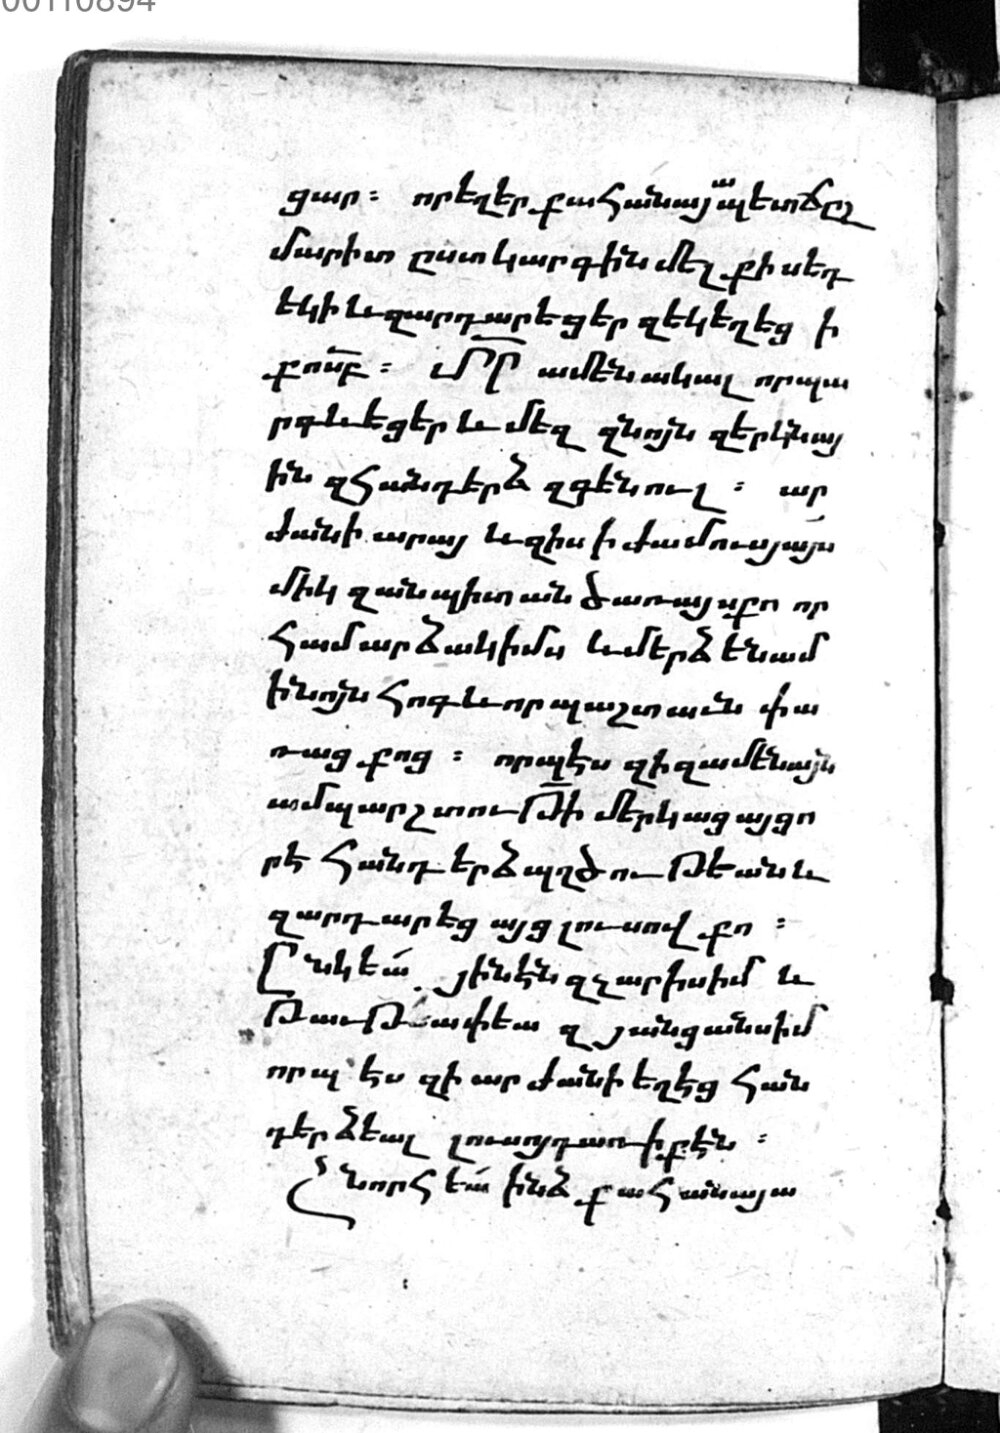 00110894
ցար։ որեղեր քահանայապետ ճըշ
մարիտ ըստ կարգին մելքիսեդ
եկի և զարդարեցեր զեկեղեց ի
քո սբ։ Մր ամենակալ որ պա
րգևեցեր և մեզ զնոյն զերկնայ
ին զհանդերձ զգենուլ։ ար
ժանի արայ և զիս ի ժամուս յայս
միկ զանպիտան ծառայս քո որ
համարձակիմս և մերձենամ
ի նոյն հոգևոր պաշտաւն փա
ռաց քոց։ որպէս զի զամենայն
ամպարշտութի մերկացայց ո
րէ հանդերձ պղծութեանն և
զարդարեցայց լուսով քո։
Ընկեա յինէն զչարիսիմ և
թաւթափեա զյանցանսիմ
որպէս զի արժանի եղէց հան
դերձեալ լուսոյդ առ ի քէն։
Շնորհեա ինձ քահանայա